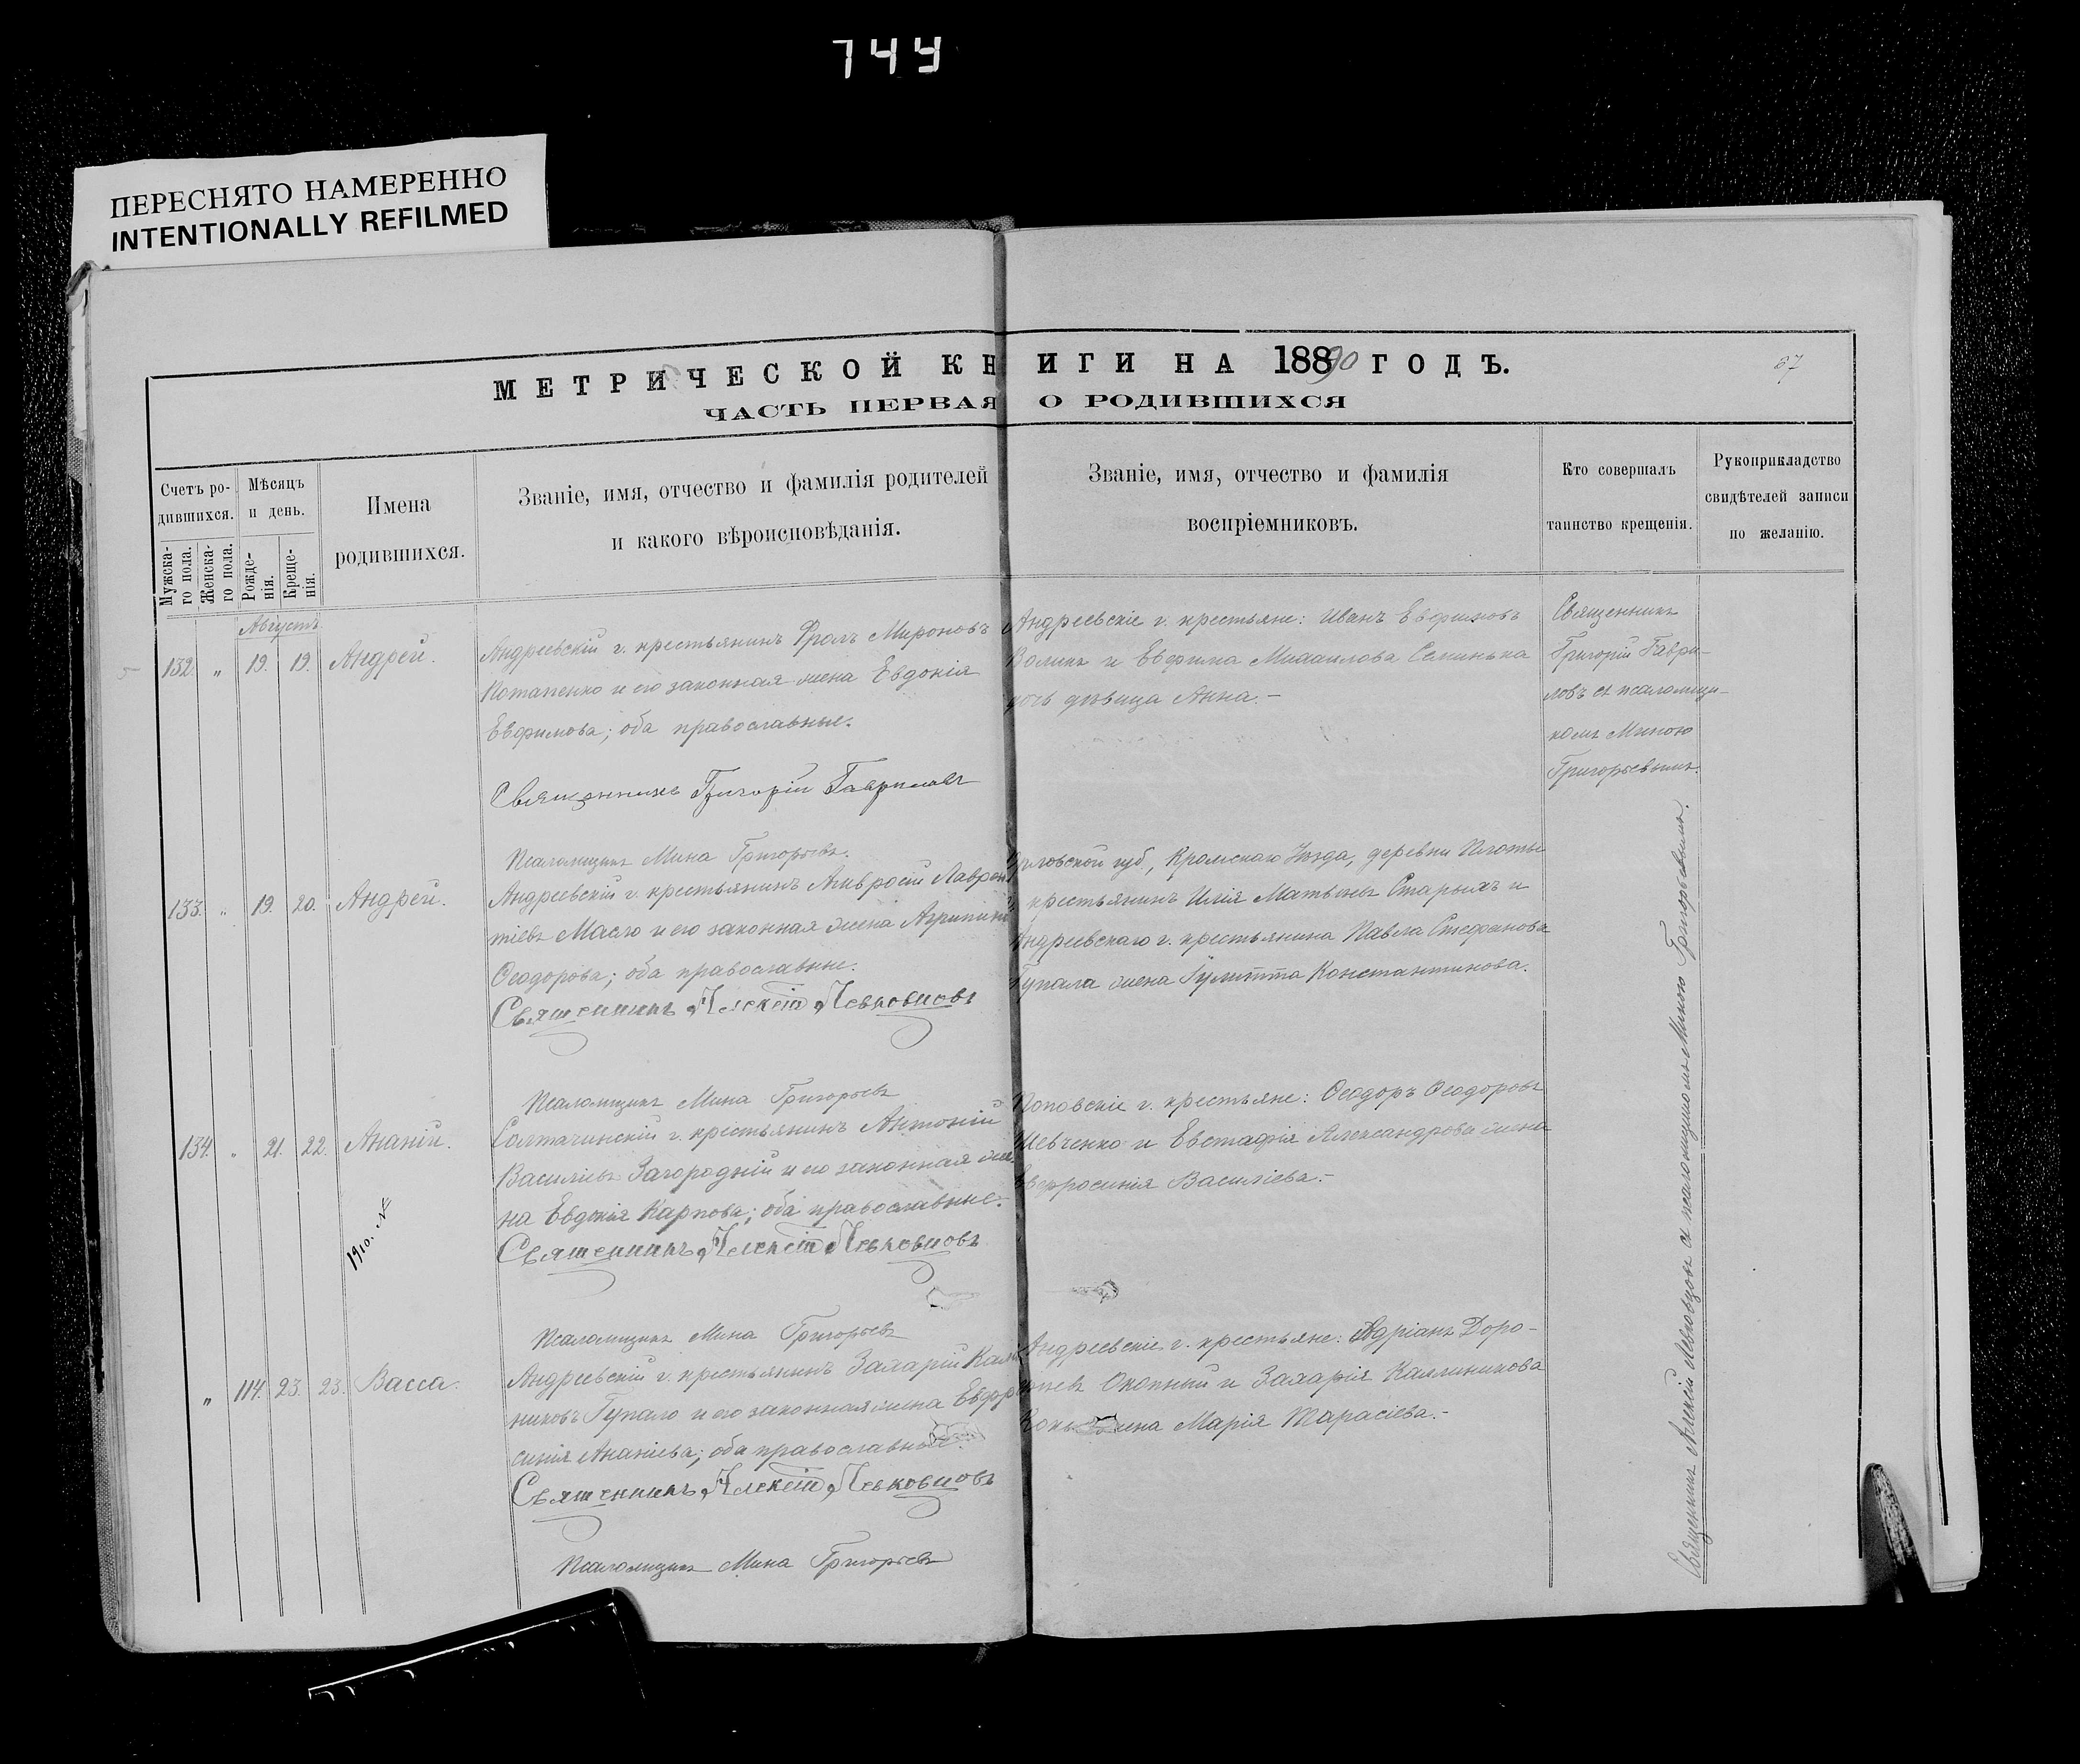 744
ПЕРЕСНЯТО НАМЕРЕННО
INTENTIONALLY REFILMED
МЕТРИЧЕСКОЙ КНИГИ НА 18890 ГОДЪ.
87
ЧАСТЬ ПЕРВАЯ О РОДИВШИХСЯ
Счетъ ро-
дившихся.
Мужска-
го пола.
Женска-
го пола.
Мѣсяцъ
и день.
Рожде-
нія.
Креще-
нія.
Имена
родившихся.
Званіе, имя, отчество и фамилія родителей
и какого вѣроисповѣданія.
Званіе, имя, отчество и фамилія
воспріемниковъ.
Кто совершалъ
таинство крещенія.
Рукоприкладство
свидѣтелей записи
по желанію.
Августъ
132. " 19. 19. Андрей.
Андреевскій г. крестьянинъ Фролъ Мироновъ
Потапенко и его законная жена Евдокія
Евфимова; оба православные.
Священникъ Григорій Гавриловъ
Псаломщикъ Мина Григорьевъ.
Андреевскіе г. крестьяне: Иванъ Евфимовъ
Воликъ и Евфима Михаилова Семинька
дочь дѣвица Анна.-
Священникъ
Григорій Гаври-
ловъ съ псаломщи-
комъ Миною
Григорьевымъ.
133. " 19. 20. Андрей.
Андреевскій г. крестьянинъ Амвросій Лаврен-
тіевъ Масло и его законная жена Агрипина
Ѳеодорова; оба православные.
Священникъ Алексій Левковцовъ
Псаломщикъ Мина Григорьевъ
Орловской губ., Кромскаго уѣзда, деревни Плоты
крестьянинъ Илія Матвѣевъ Старыхъ и
Андреевскаго г. крестьянина Павла Стефанова
Гупала жена Іулитта Константинова.
134. " 21. 22. Ананій.
1910.
Солтачинскій г. крестьянинъ Антоній
Василіевъ Загородній и его законная же-
на Евдокія Карпова; оба православные.
Священникъ Алексій Левковцовъ
Псаломщикъ Мина Григорьевъ
Поповскіе г. крестьяне: Ѳеодоръ Ѳеодоровъ
Шевченко и Евстафія Александрова жена
Евфросинія Василіева.-
" 114. 23. 23. Васса.
Андреевскій г. крестьянинъ Захарій Кали-
никовъ Гупало и его законная жена Евфро-
синія Ананіева; оба православные.
Священникъ Алексій Левковцовъ
Псаломщикъ Мина Григорьевъ
Андреевскіе г. крестьяне: Адріанъ Доро-
Окопный и Захарія Каллиникова
жена Марія Тарасіева.-
Священникъ Алексій Левковцовъ съ псаломщикомъ Миною Григорьевымъ.